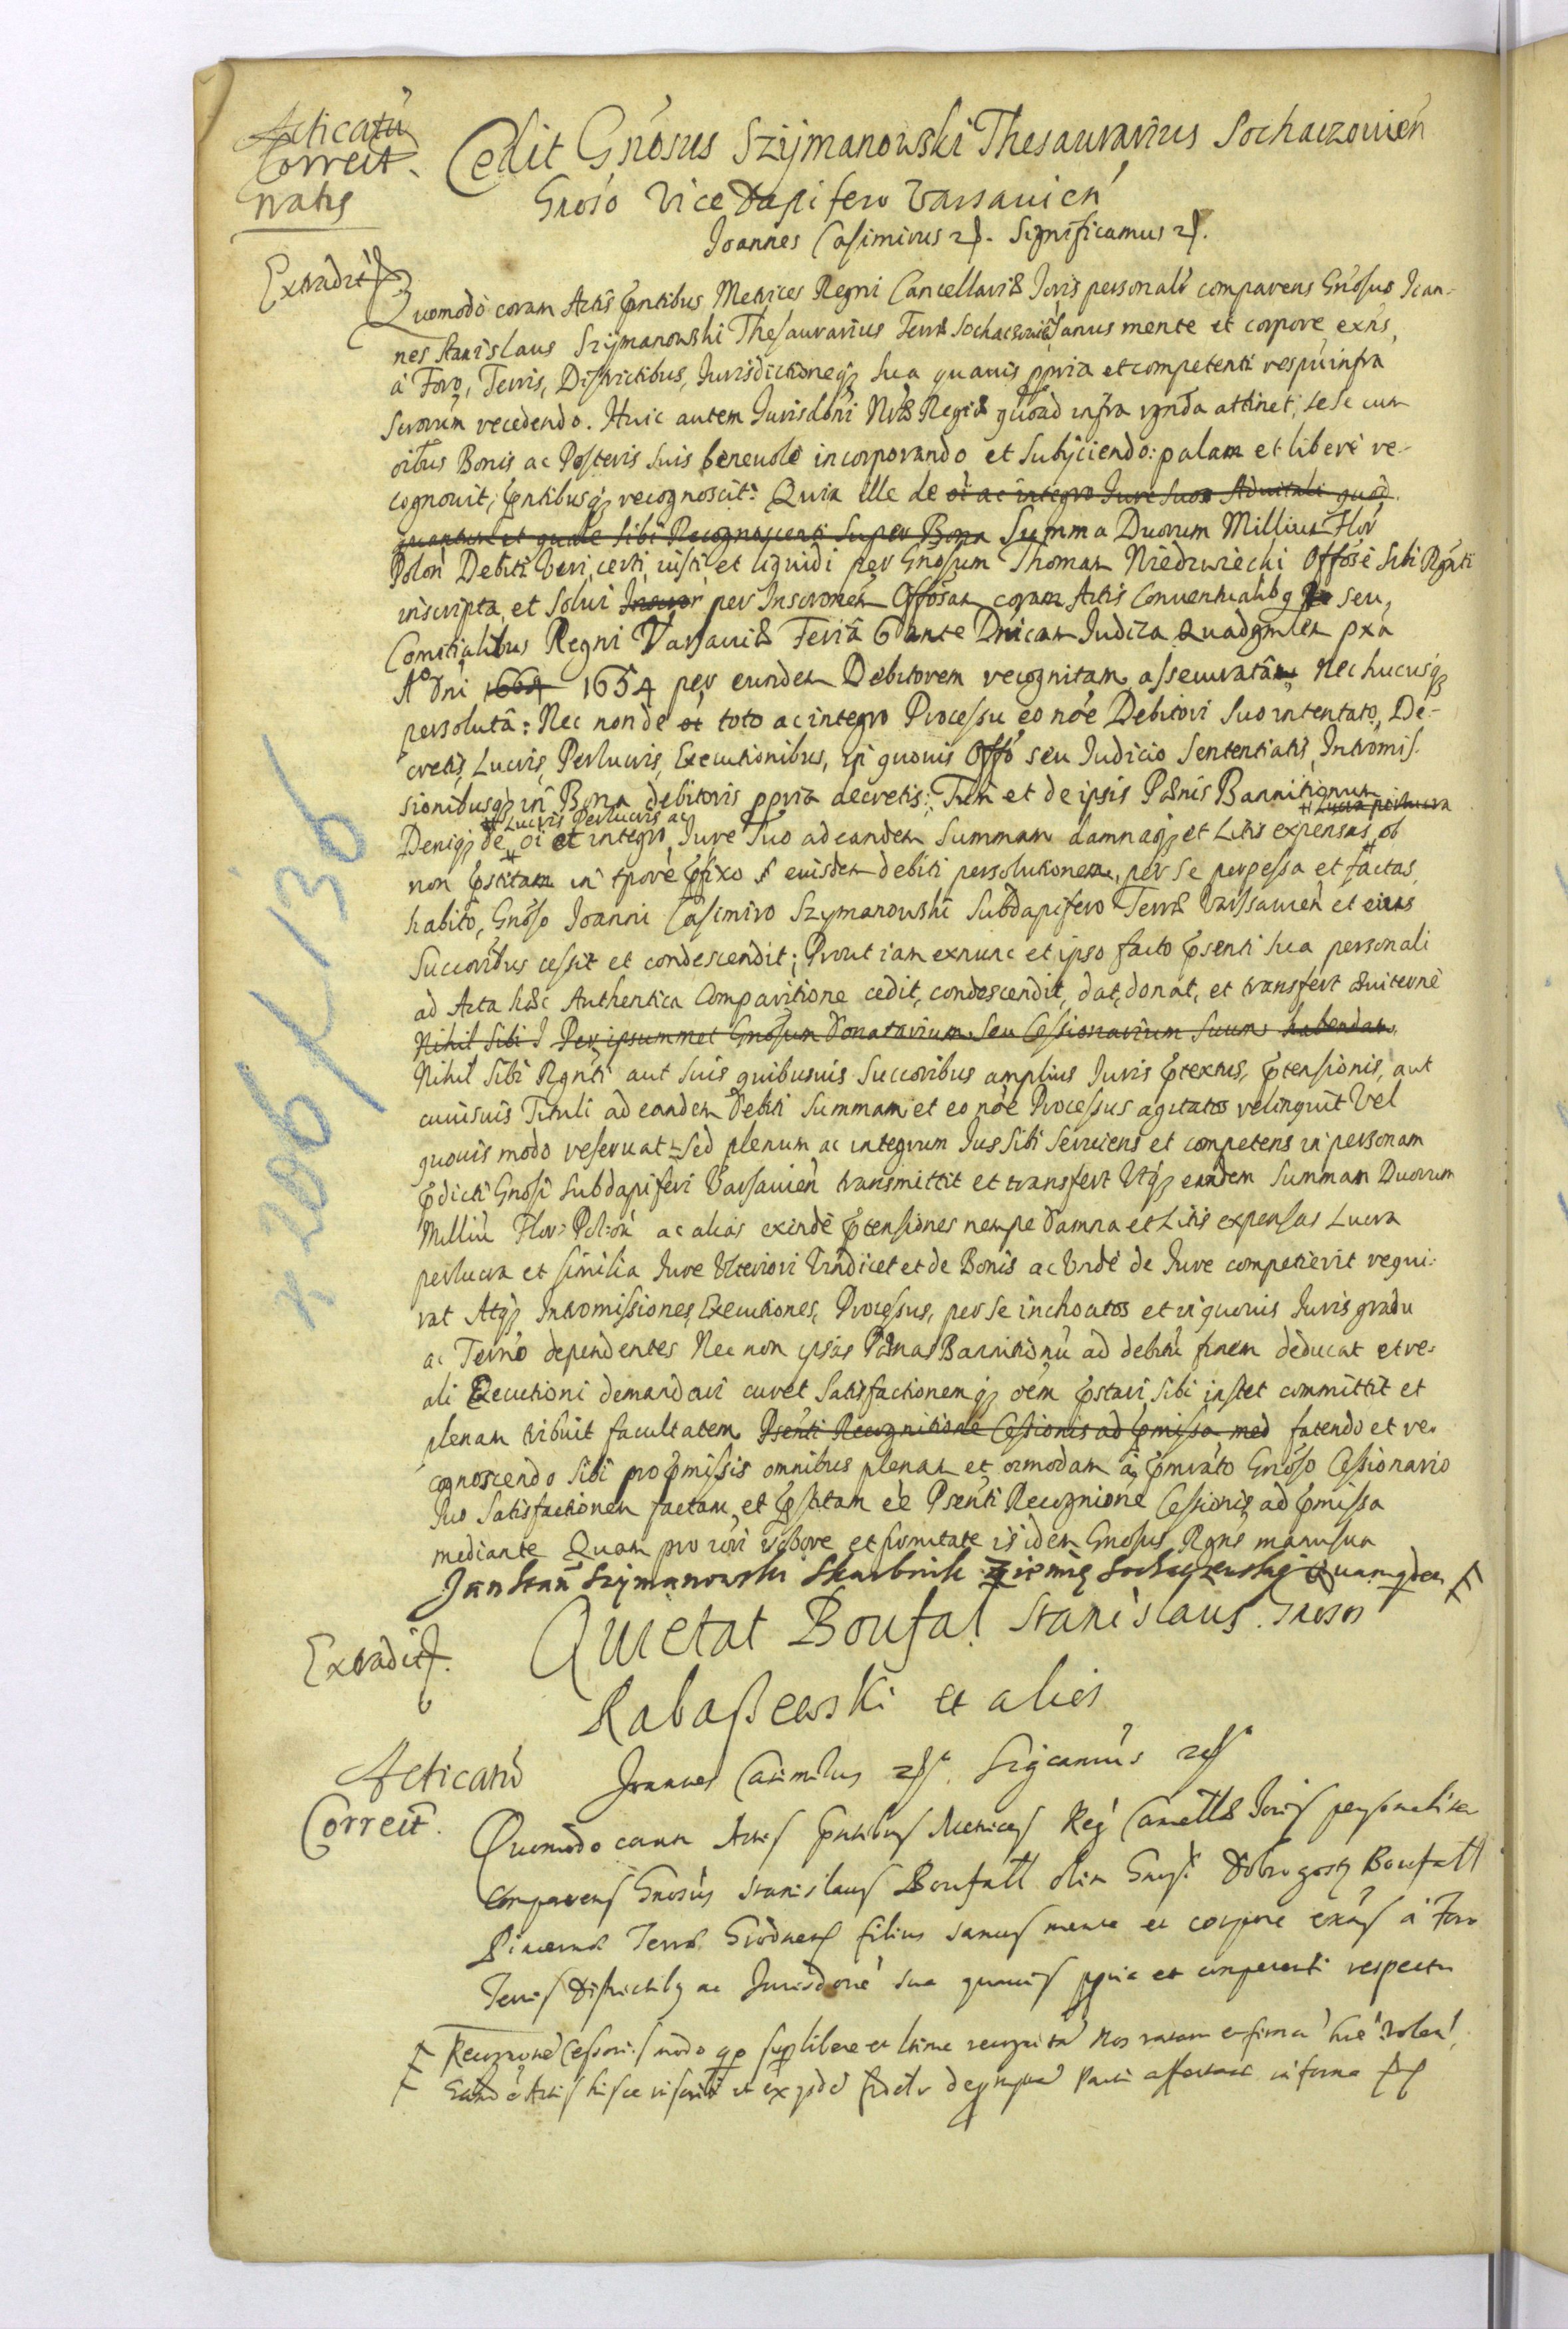 Acticatū
Correct.
gratis
Cedit Gnósus Szijmanowski Thesaurarius Sochaczouień
Gnoso Vice Dapifero Varsauień
Joannes Casimirus etc. Significamus etc.
Extradit
Quomodo coram Actis pntibus Metrices Regni Cancellariæ Joris personalr̀ comparens Gnosus Joan-
nes Stanislaus Szijmanowski Thesaurarius Terræ Sochaczouień Sanus mente et corpore exns,
á Foro, Terris, Districtibus, Jurisdictioneq; sua quauis ppria et competenti respũ infra
Scrorum recedendo. Huic autem Jurisdóni Nræ Regiæ quoad infra rgnda attinet, sese cum
oĩbus Bonis ac Posteris suis beneuolè incorporando et Subijciendo: palam et liberè re-
cognouit, pntibusq; recognoscit: Quia Ille de oĩ ac integro Jure Suo Aduitali quod
quantum et quale Sibi Recognoscenti Super Bona Summa Duorum Millium Flor
Polon Debiti Veri, certi, iusti et liquidi per Gnosum Thomam Niedzwiecki Offosè Sibi Rgnti
inscripta, et Solui per Inscronem Offosam coram Actis Conuentualib9 seu,
Comitialibus Regni Varsauiæ Feriâ 6 ante Dnicam Judica Quadgmlem pxa
Aº Dni 1664 1654 per eundem Debitorem recognitam, assecuratâm, Nec hucusq;
persolutâ: Nec non de et toto ac integro Processu eo nóe Debitori Suo intentato, De-
cretis, Lucris, Perlucris, Executionibus, in quouis Offo seu Judicio Sententiatis, Intromis-
sionibusq; in Bona debitoris ppria decretis: Tum et de ipsis Pænis Bannitionum
# Lucris Perlucris ac
# Lucra perlucra
Deniq; de oĩ et integro Jure Suo ad eandem Summam damnaq; et Litis expensas ob
non pstitam in tpore pfixo eiusdem debiti persolutionem, per se perpessa et factas,
habito, Gnoso Joanni Casimiro Szymanowski Subdapifero Terræ Varssauień et eius
Succoribus cessit et condescendit; Prout iam exnunc et ipso facto psenti sua personali
ad Acta hæc Authentica Comparitione cedit, condescendit, dat, donat, et transfert æuiternè
Nihil Sibi Per ipsummet Gnosum Donatarium seu Cessionarium Suum habendam
Nihil Sibi Rgnti aut Suis quibusuis Succoribus amplius Juris ptextus, ptensionis, aut
cuiusuis Tituli ad eandem Debiti Summam et eo nóe Processus agitatos relinquit Vel
quouis modo reseruat: Sed plenum ac integrum Jus Sibi Seruiens et competens in personam
pdicti Gnosi Subdapiferi Varsauień transmittit et transfert Vtq; eandem Summam Duorum
Milliū Flor: Polon ac alias exindè ptensiones nempe Damna et Litis expensas Lucra
perlucra et similia Jure Vlteriori Vindicet et de Bonis ac Vndè de Jure competierit requi-
rat Atq; Intromissiones, Executiones, Processus, per se inchoatos et in quouis Juris gradu
ac Termo dependentes Nec non ipsas Pænas Bannitionū ad debitū finem deducat et re-
ali Executioni demandari curet Satisfactionemq; oém pstari sibi instet committit et
plenam tribuit facultatem. Psenti Recognitione Cessionis ad pmissa med fatendo et re-
cognoscendo Sibi pro pmissis omnibus plenam et oĩmodam á pmrato Gnoso Cessionario
Suo Satisfactionem factam et pstitam eē Psenti Recognione Cessionis ad pmissa
mediante Quam pro robore et firmitate isidem Gnosus Rgns manu sua
Jan Stań Szymanowski Skarbnik ziemię Sochaczewskiej Quamqdem #
Quietat Boufał Stanislaus Gnosos
Rabaszewski et alios
Extradit.
Acticatū
Correct.
Joannes Casimirus etc. Sigcamus etc
Quomodo coram Actis pntibus Metrices Reg Cancellæ Joris personaliter
comparens Gnosus Stanislaus Boufall olim Gnosi Dobrogosty Boufall
Pincernæ Terræ Grodnens filius sanus mente et corpore exns á Foro
Terris Districtib9 ac Jurisdone sua quauis ppria et competenti respectu
# Recognone Cessonis modo quo supra libere ac recognita Nos ratam et firmā